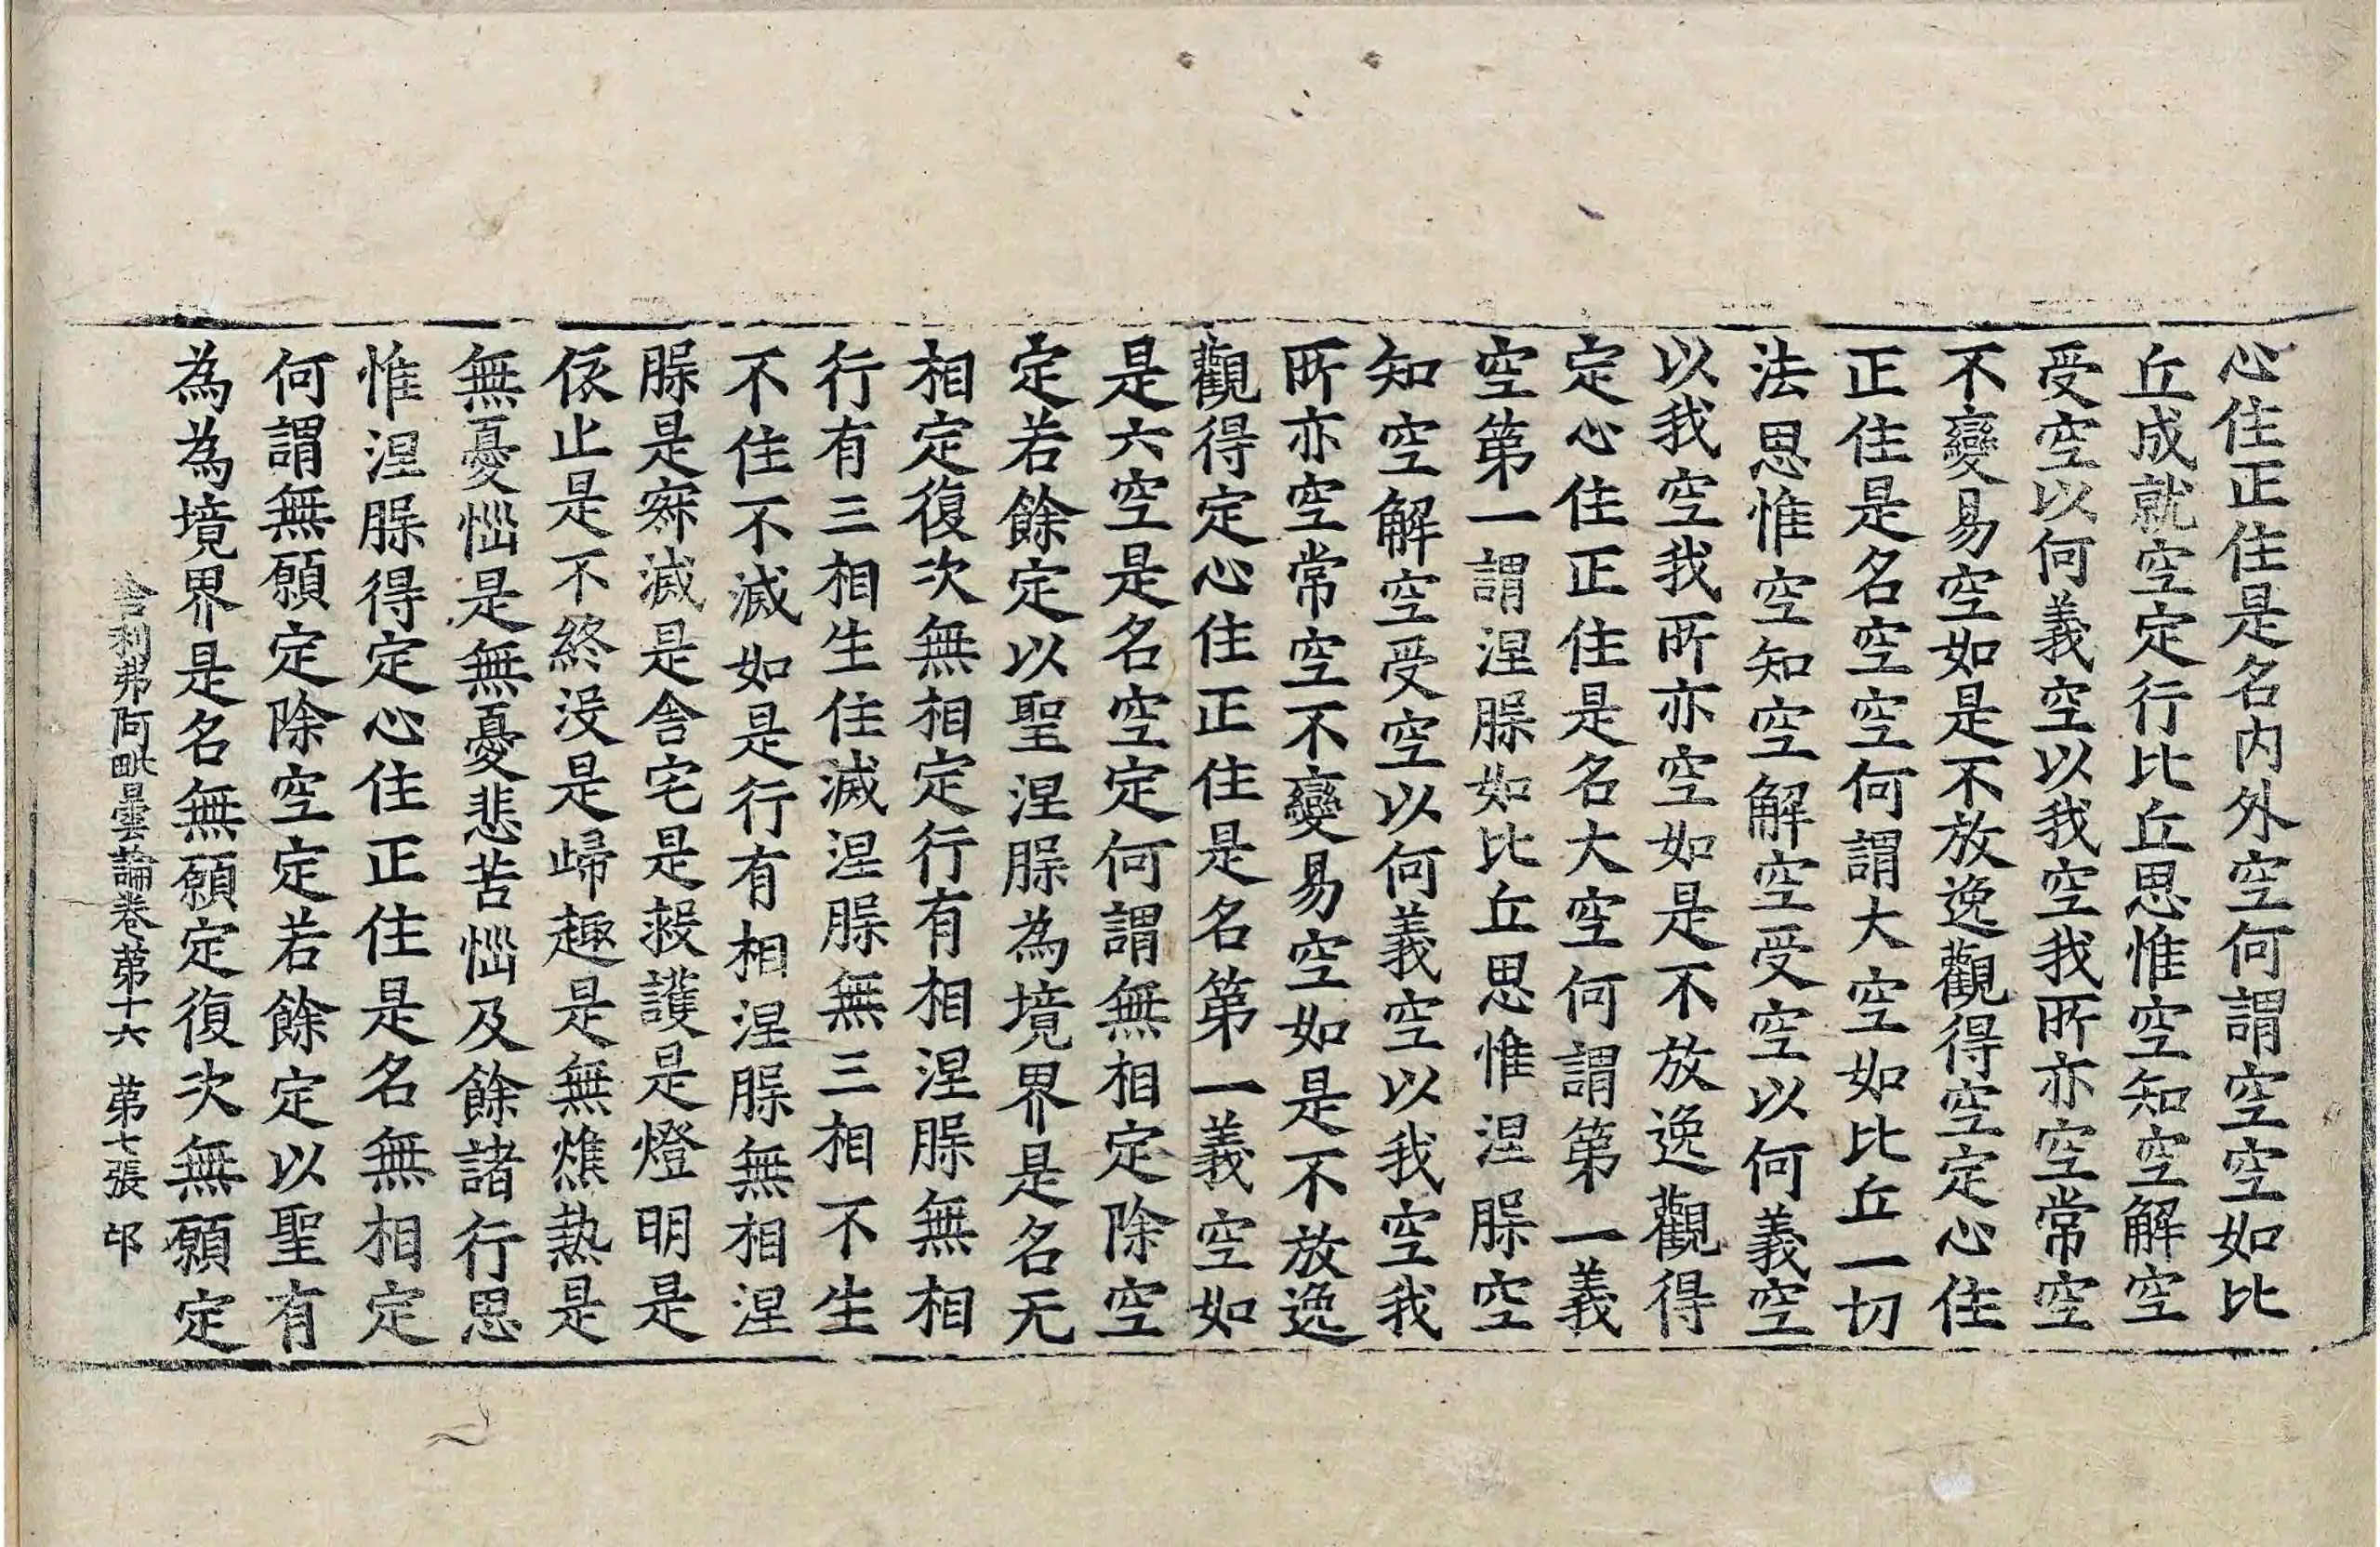 心住正住是名内外空何謂空空如比
丘成就空定行比丘思惟空知空解空
受空以何義空以我空我所亦空常空
不變易空如是不放逸觀得空定心住
正住是名空空何謂大空如比丘一切
法思惟空知空解空受空以何義空
以我空我所亦空如是不放逸觀得
定心住正住是名大空何謂第一義
空第一謂涅槃如比丘思惟涅槃空
知空解空受空以何義空以我空我
所亦空常空不變易空如是不放逸
觀得定心住正住是名第一義空如
是六空是名空定何謂無相定除空
定若餘定以聖涅槃為境界是名无
相定復次無相定行有相涅槃無相
行有三相生住滅涅槃無三相不生
不住不滅如是行有相涅槃無相涅
槃是寂滅是舍宅是救護是燈明是
依止是不終没是歸趣是無燋熱是
無憂惱是無憂悲苦惱及餘諸行思
惟涅槃得定心住正住是名無相定
何謂無願定除空定若餘定以聖有
為為境界是名無願定復次無願定
舍利弗阿毗曇論卷第十六 第七張 邙